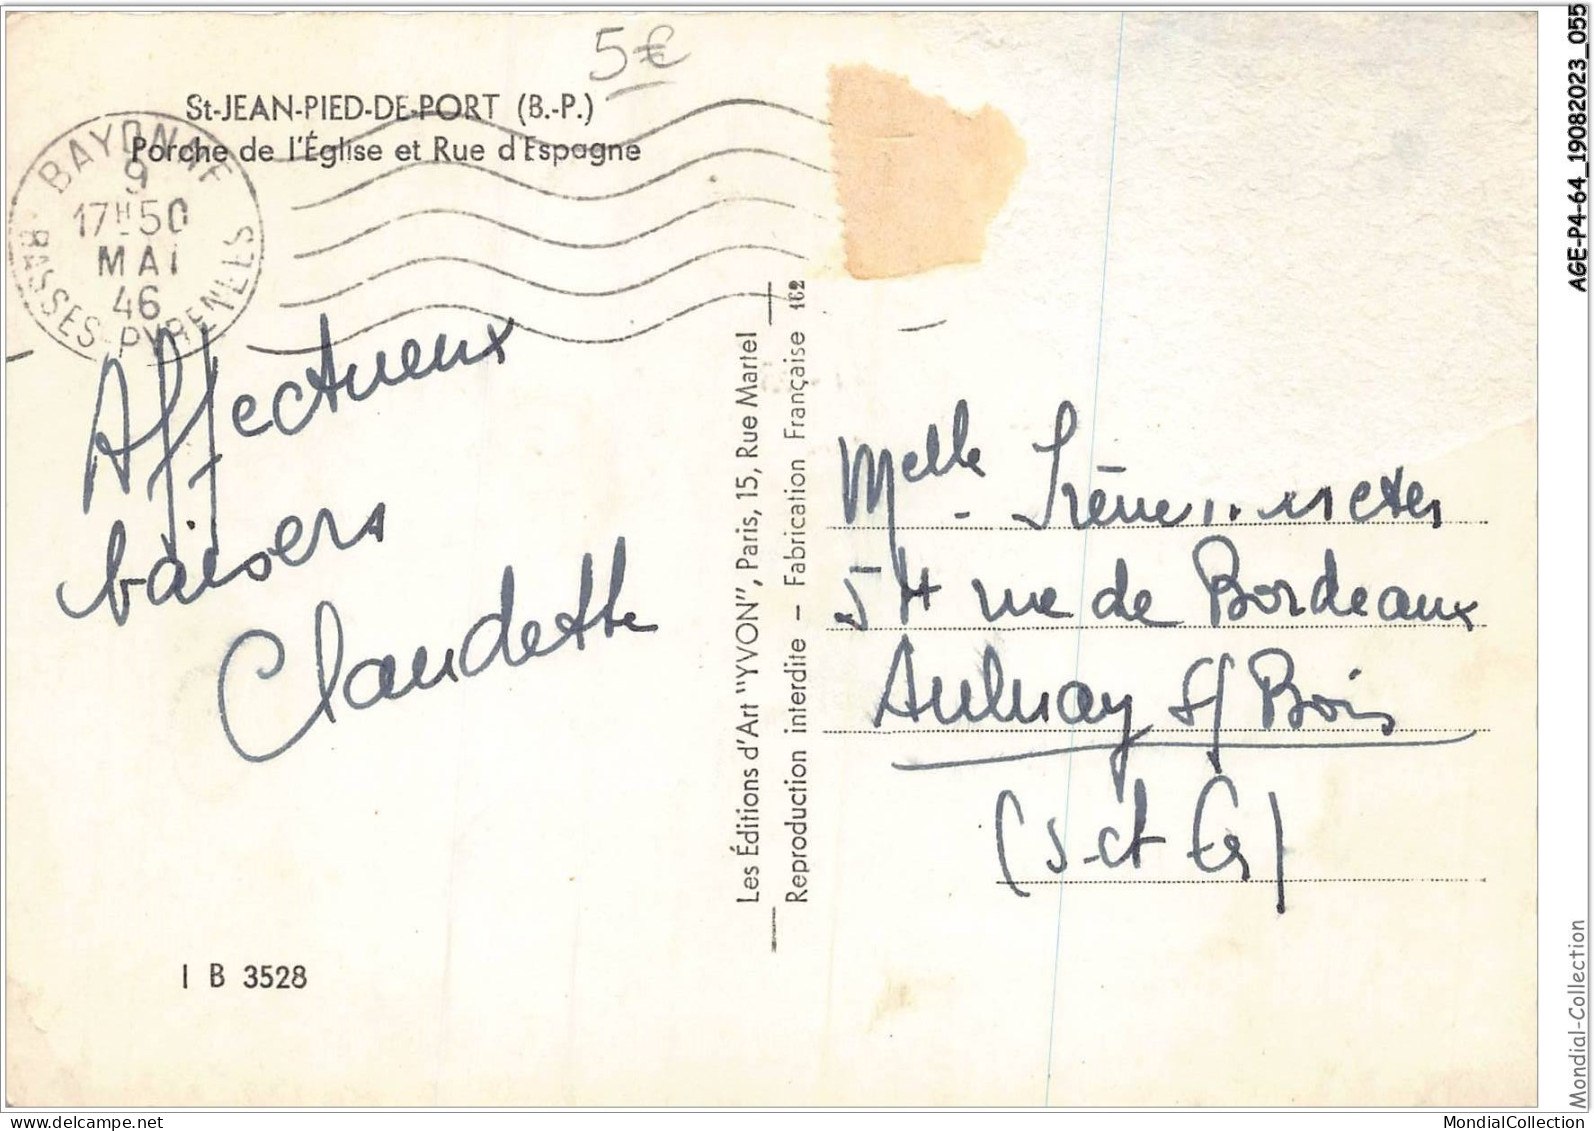 5€
St-JEAN-PIED-DE-PORT (B.-P.)
Porche de l'Église et Rue d'Espagne
BAYONNE
9
17H50
MAI
46
BASSES-PYRENEES
Affectueux
baisers
Claudette
I B 3528
Les Éditions d'Art "YVON", Paris, 15, Rue Martel
Reproduction interdite — Fabrication Française 162
Melle Irène
54 rue de Bordeaux
Aulnay s/ Bois
(S. et O.)
AGE-P4-64_19082023_055
Mondial-Collection
MondialCollection